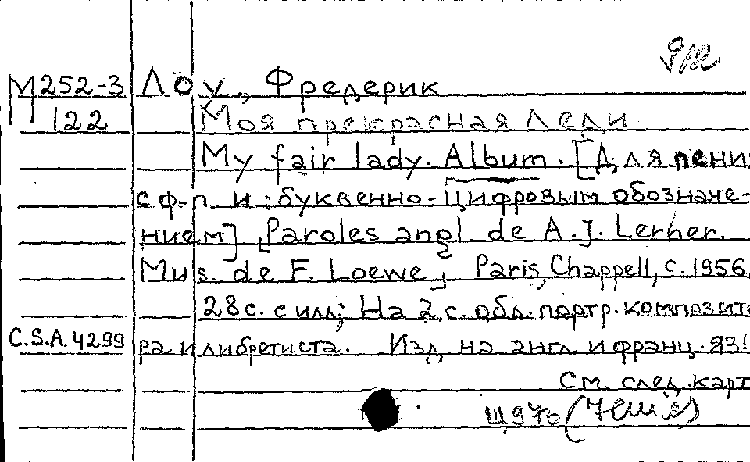 М252-3 Лоу, Фредерик
122 Моя прекрасная леди.
My fair lady. Album. [Для пения
с ф-п. и буквенно-цифровым обозначе-
нием]. Paroles angl. de A. J. Lerner.
Mus. de F. Loewe. Paris, Chappell, c. 1956.
28 с. с илл; На 2 с. обл. портр. композито
C.S.A. 4299 ра и либреттиста. Изд. на англ. и франц. яз!
См. след. карт